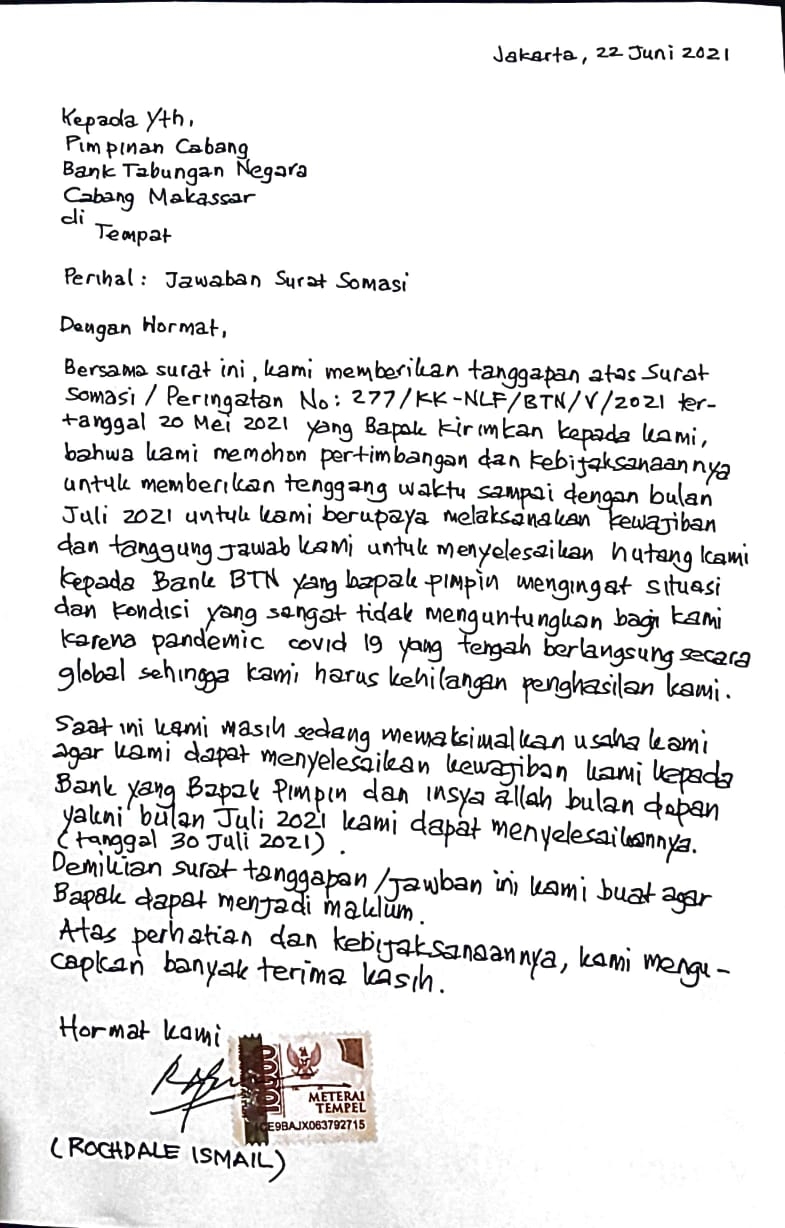 Jakarta, 22 Juni 2021
Kepada Yth,
Pimpinan Cabang
Bank Tabungan Negara
Cabang Makassar
di
Tempat
Perihal : Jawaban Surat Somasi
Dengan Hormat,
Bersama surat ini, kami memberikan tanggapan atas Surat
Somasi / Peringatan No: 277/KK-NLF/BTN/V/2021 ter-
tanggal 20 Mei 2021 yang Bapak kirimkan kepada kami,
bahwa kami memohon pertimbangan dan kebijaksanaannya
untuk memberikan tenggang waktu sampai dengan bulan
Juli 2021 untuk kami berupaya melaksanakan kewajiban
dan tanggung jawab kami untuk menyelesaikan hutang kami
kepada Bank BTN yang bapak pimpin mengingat situasi
dan kondisi yang sangat tidak menguntungkan bagi kami
karena pandemic covid 19 yang tengah berlangsung secara
global sehingga kami harus kehilangan penghasilan kami.
Saat ini kami masih sedang memaksimalkan usaha kami
agar kami dapat menyelesaikan kewajiban kami kepada
Bank yang Bapak Pimpin dan insya allah bulan depan
yakni bulan Juli 2021 kami dapat menyelesaikannya.
(tanggal 30 Juli 2021).
Demikian surat tanggapan/jawban ini kami buat agar
Bapak dapat menjadi maklum.
Atas perhatian dan kebijaksanaannya, kami mengu-
capkan banyak terima kasih.
Hormat kami
10000
METERAI
TEMPEL
CE9BAJX063792715
(ROCHDALE ISMAIL)